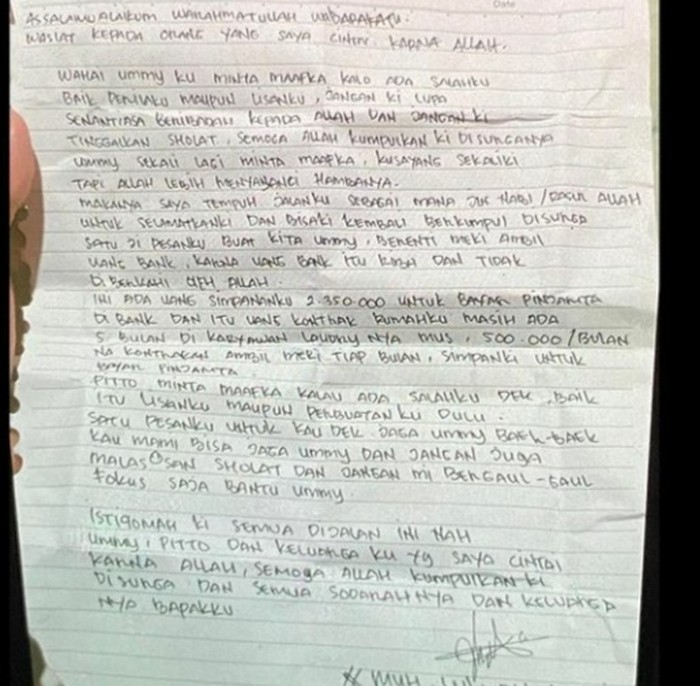 ASSALAMUALAIKUM WARAHMATULLAH WABARAKATU.
WASIAT KEPADA ORANG YANG SAYA CINTAI KARNA ALLAH.
WAHAI UMMY KU MINTA MAAFKA KALO ADA SALAHKU
BAIK PERILAKU MAUPUN LISANKU, JANGAN KI LUPA
SENANTIASA BERIBADAH KEPADA ALLAH DAN JANGAN KI
TINGGALKAN SHOLAT, SEMOGA ALLAH KUMPULKAN KI DISURGANYA
UMMY SEKALI LAGI MINTA MAAFKA, KUSAYANG SEKALIKI
TAPI ALLAH LEBIH MENYAYANGI HAMBANYA.
MAKANYA SAYA TEMPUH JALANKU SEBAGAI MANA JLN NABI/RASUL ALLAH
UNTUK SELAMATKANKI DAN BISAKI KEMBALI BERKUMPUL DISURGA
SATU JI PESANKU BUAT KITA UMMY, BERENTI MEKI AMBIL
UANG BANK, KARNA UANG BANK ITU RIBA DAN TIDAK
DIBERKAHI OLEH ALLAH.
INI ADA UANG SIMPANANKU 2.350.000 UNTUK BAYAR PINJAMTA
DI BANK DAN ITU UANG KONTRAK RUMAHKU MASIH ADA
5 BULAN DI KARYAWAN NYA MUS, 500.000/BULAN
NA KONTRAKAN AMBIL MEKI TIAP BULAN, SIMPANKI UNTUK
BAYAR PINJAMTA
PITTO MINTA MAAFKA KALAU ADA SALAHKU DEK, BAIK
ITU LISANKU MAUPUN PERBUATAN KU DULU.
SATU PESANKU UNTUK KAU DEK JAGA UMMY BAEK-BAEK
KAU MAMI BISA JAGA UMMY DAN JANGAN JUGA
MALAS SHOLAT DAN JANGAN MI BERGAUL-GAUL
FOKUS SAJA BANTU UMMY.
ISTIQOMAH KI SEMUA DIJALAN INI NAH
UMMY, PITTO DAN KELUARGA KU YG SAYA CINTAI
KARNA ALLAH, SEMOGA ALLAH KUMPULKAN KI
DISURGA DAN SEMUA SODARAH NYA DAN KELUARGA
NYA BAPAKKU
MUH.